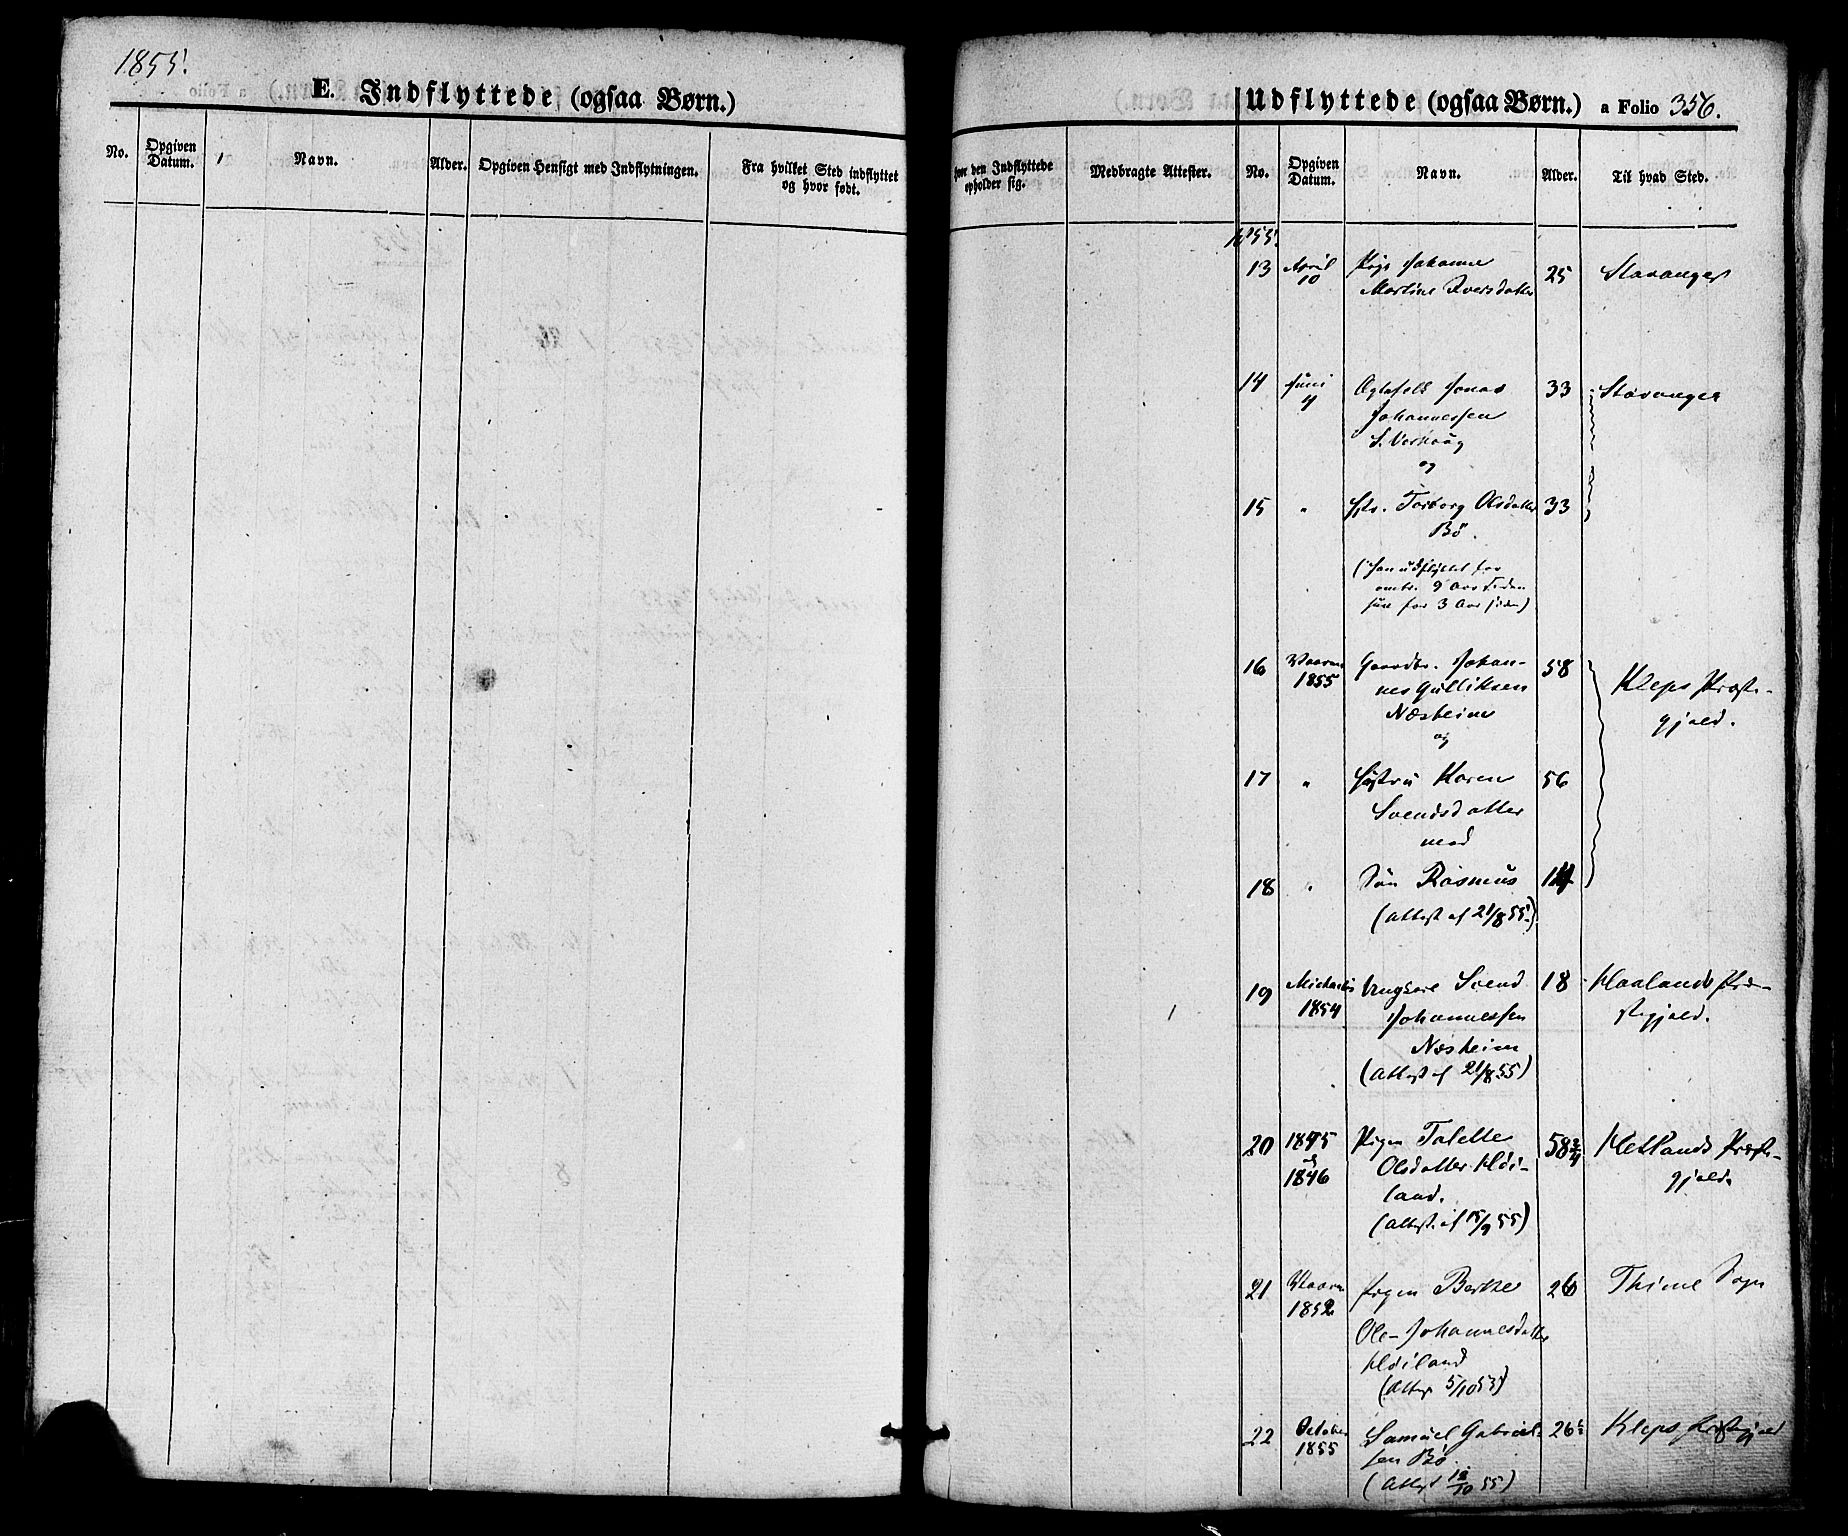 1855.
E. Indflyttede (ogsaa Børn.)
No.
Opgiven Datum.
Navn.
Alder.
Opgiven Hensigt med Indflytningen.
Fra hvilket Sted indflyttet og hvor født.
Udflyttede (ogsaa Børn.) a Folio 356.
hvor den Indflyttede opholder sig.
Medbragte Attester.
No.
Opgiven Datum.
Navn.
Alder.
Til hvad Sted.
1855.
13 April 10 Pige Johanne 25 Stavanger
Martine Iversdatter
14 Juni 4 Jonas 33 Stavanger
Johannessen
og
15 " Torborg Olsdatter 33
Bø.
(han udflyttet for
omtr. 9 Aar siden
hun for 3 Aar siden)
16 Vaaren 1855 Gaardbr. Johan- 58 Kleps Præste-
nes Gulliksen gjæld.
Næsheim
og
17 " Hustru Karen 56
Svendsdatter
med
18 " Søn Rasmus 14
(Attest af 21/8 55.)
19 Michaelis 1854 Ungkarl Svend 18 Haalands Præ-
Johannessen stegjæld.
Næsheim
(Attest af 21/8 55)
20 1845 og 1846 Pigen Talette 58 3/4 Hetlands Præste-
Olsdatter Høi- gjæld.
land.
(Attest. af 15/9 55)
21 Vaaren 1852 Pigen Berthe 26 Thime Sogn
Ole-Johannesdatter
Høiland
(Attest 5/10 53)
22 October 1855 Samuel Gabriel- 26 Kleps Præstegjæld
sen Bø.
(Attest 12/10 55)